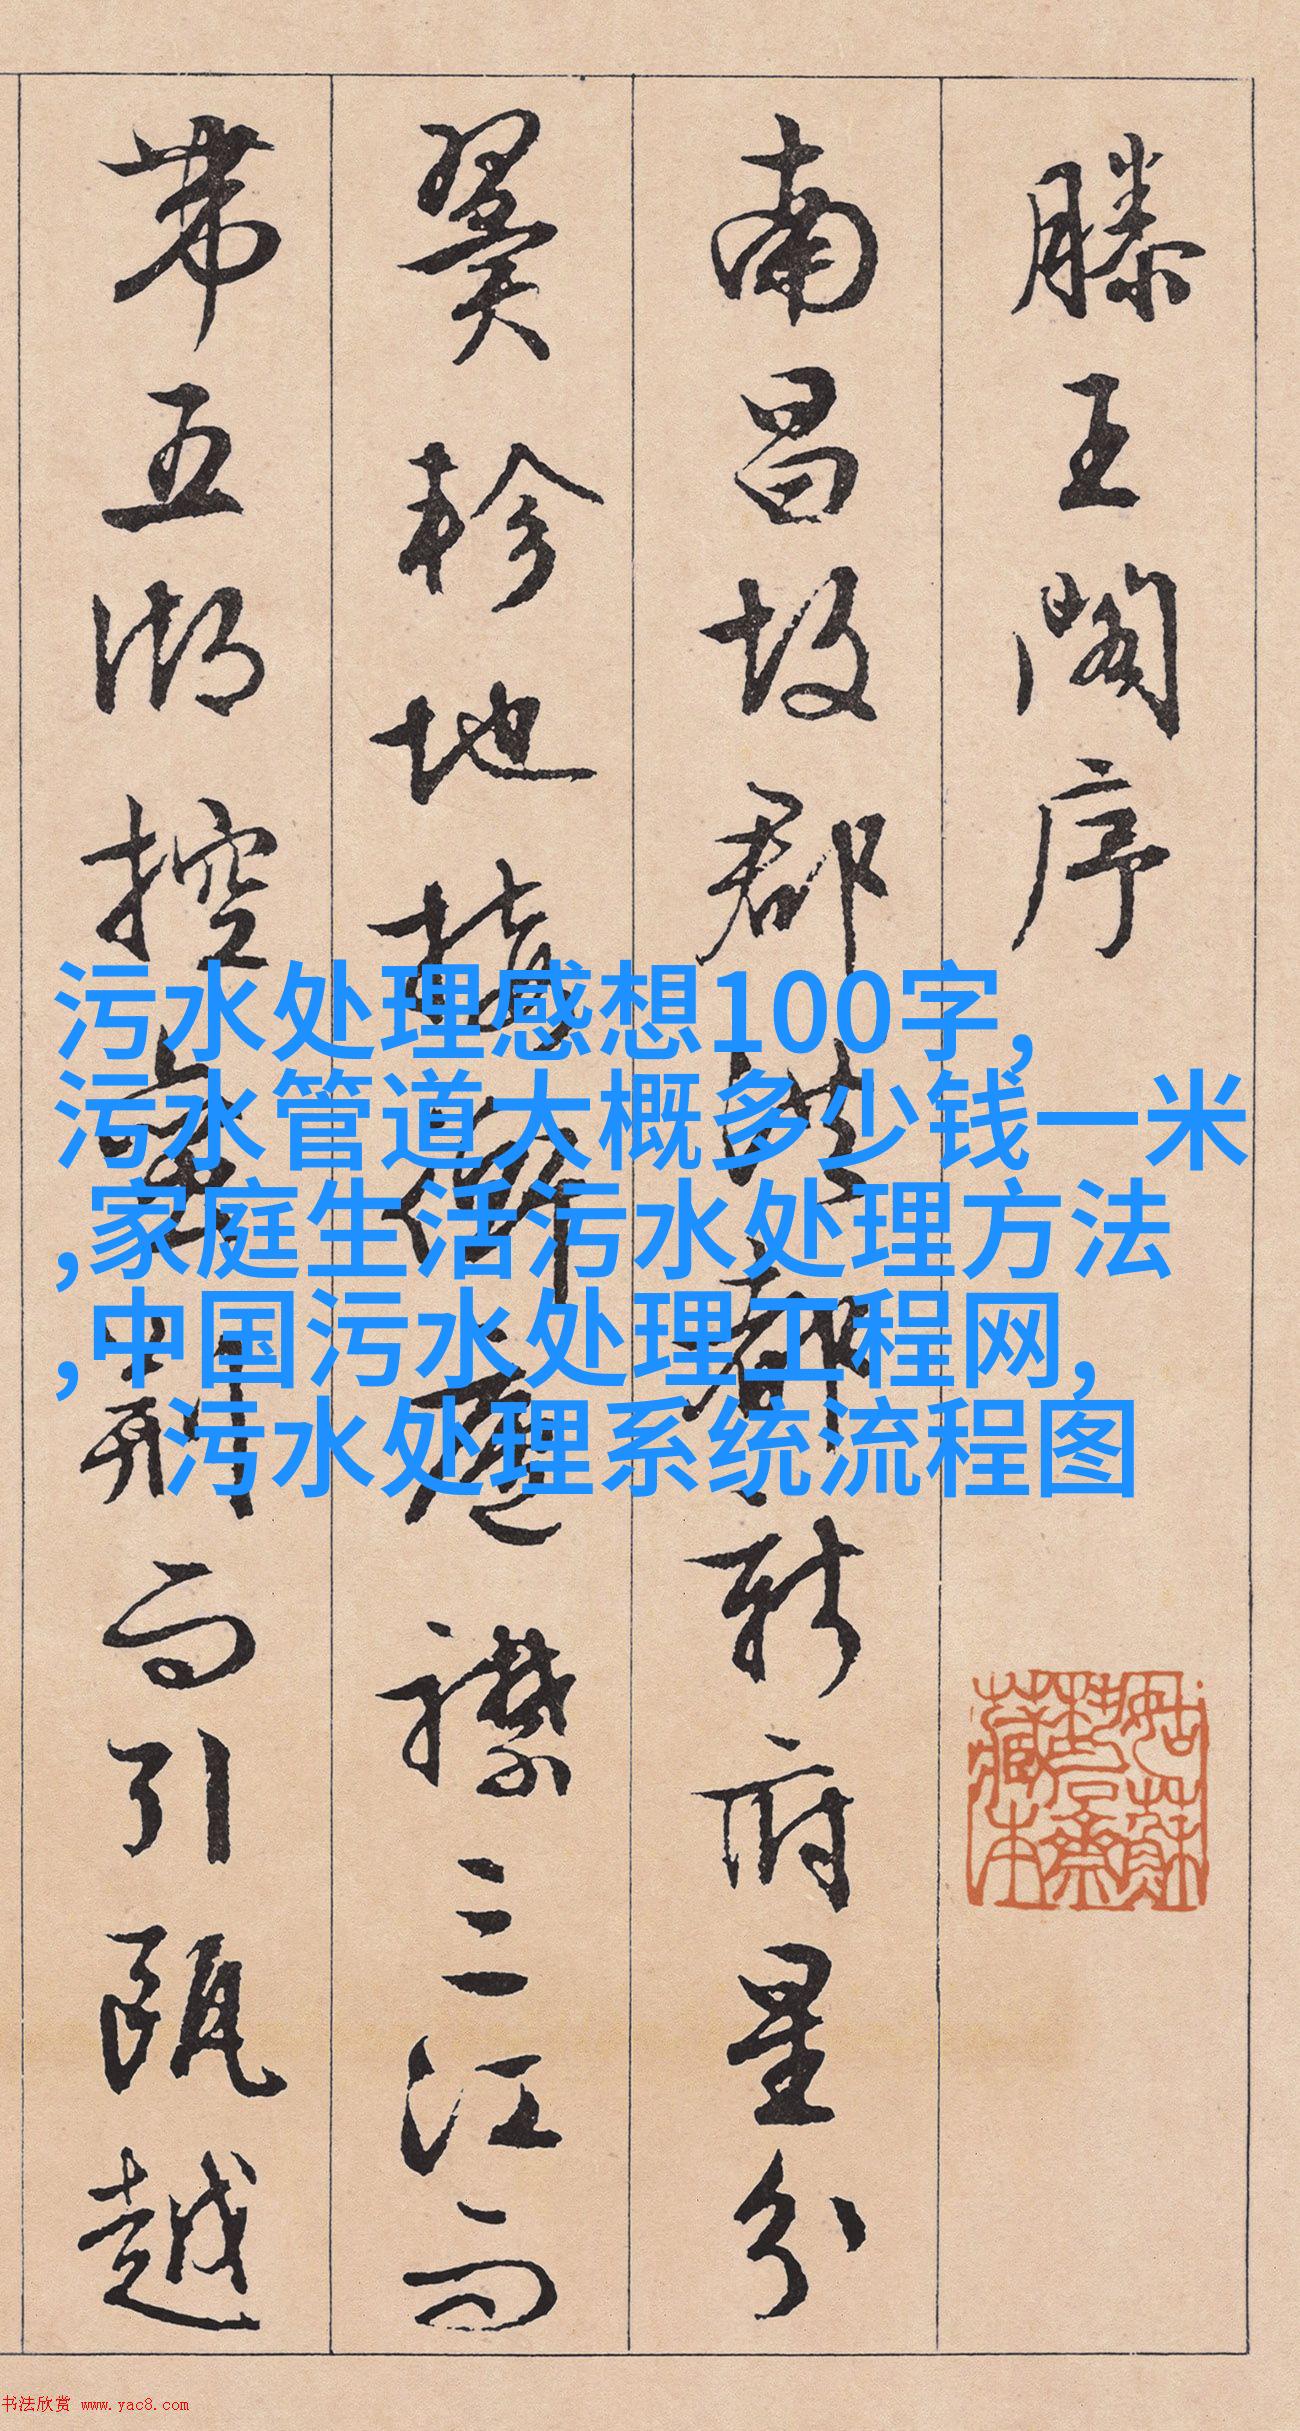 滕王閣序
南昌故郡洪都新府星分
翼軫地接衡廬襟三江而
帶五湖控蠻荊而引甌越
污水处理感想100字,
污水管道大概多少钱一米
,家庭生活污水处理方法
,中国污水处理工程网,
污水处理系统流程图
书法欣赏 www.yac8.com